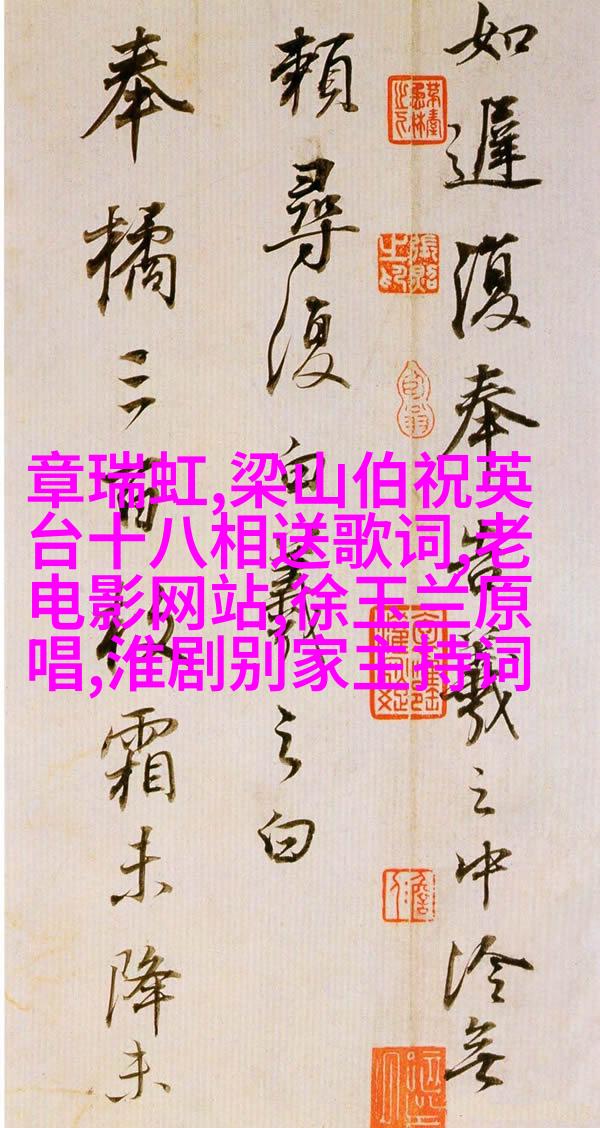 章瑞虹,梁山伯祝英
台十八相送歌词,老
电影网站,徐玉兰原
唱,淮剧别家主持词
如遲復奉告羲之中冷無
賴尋復白羲之白
奉橘三百枚霜未降未